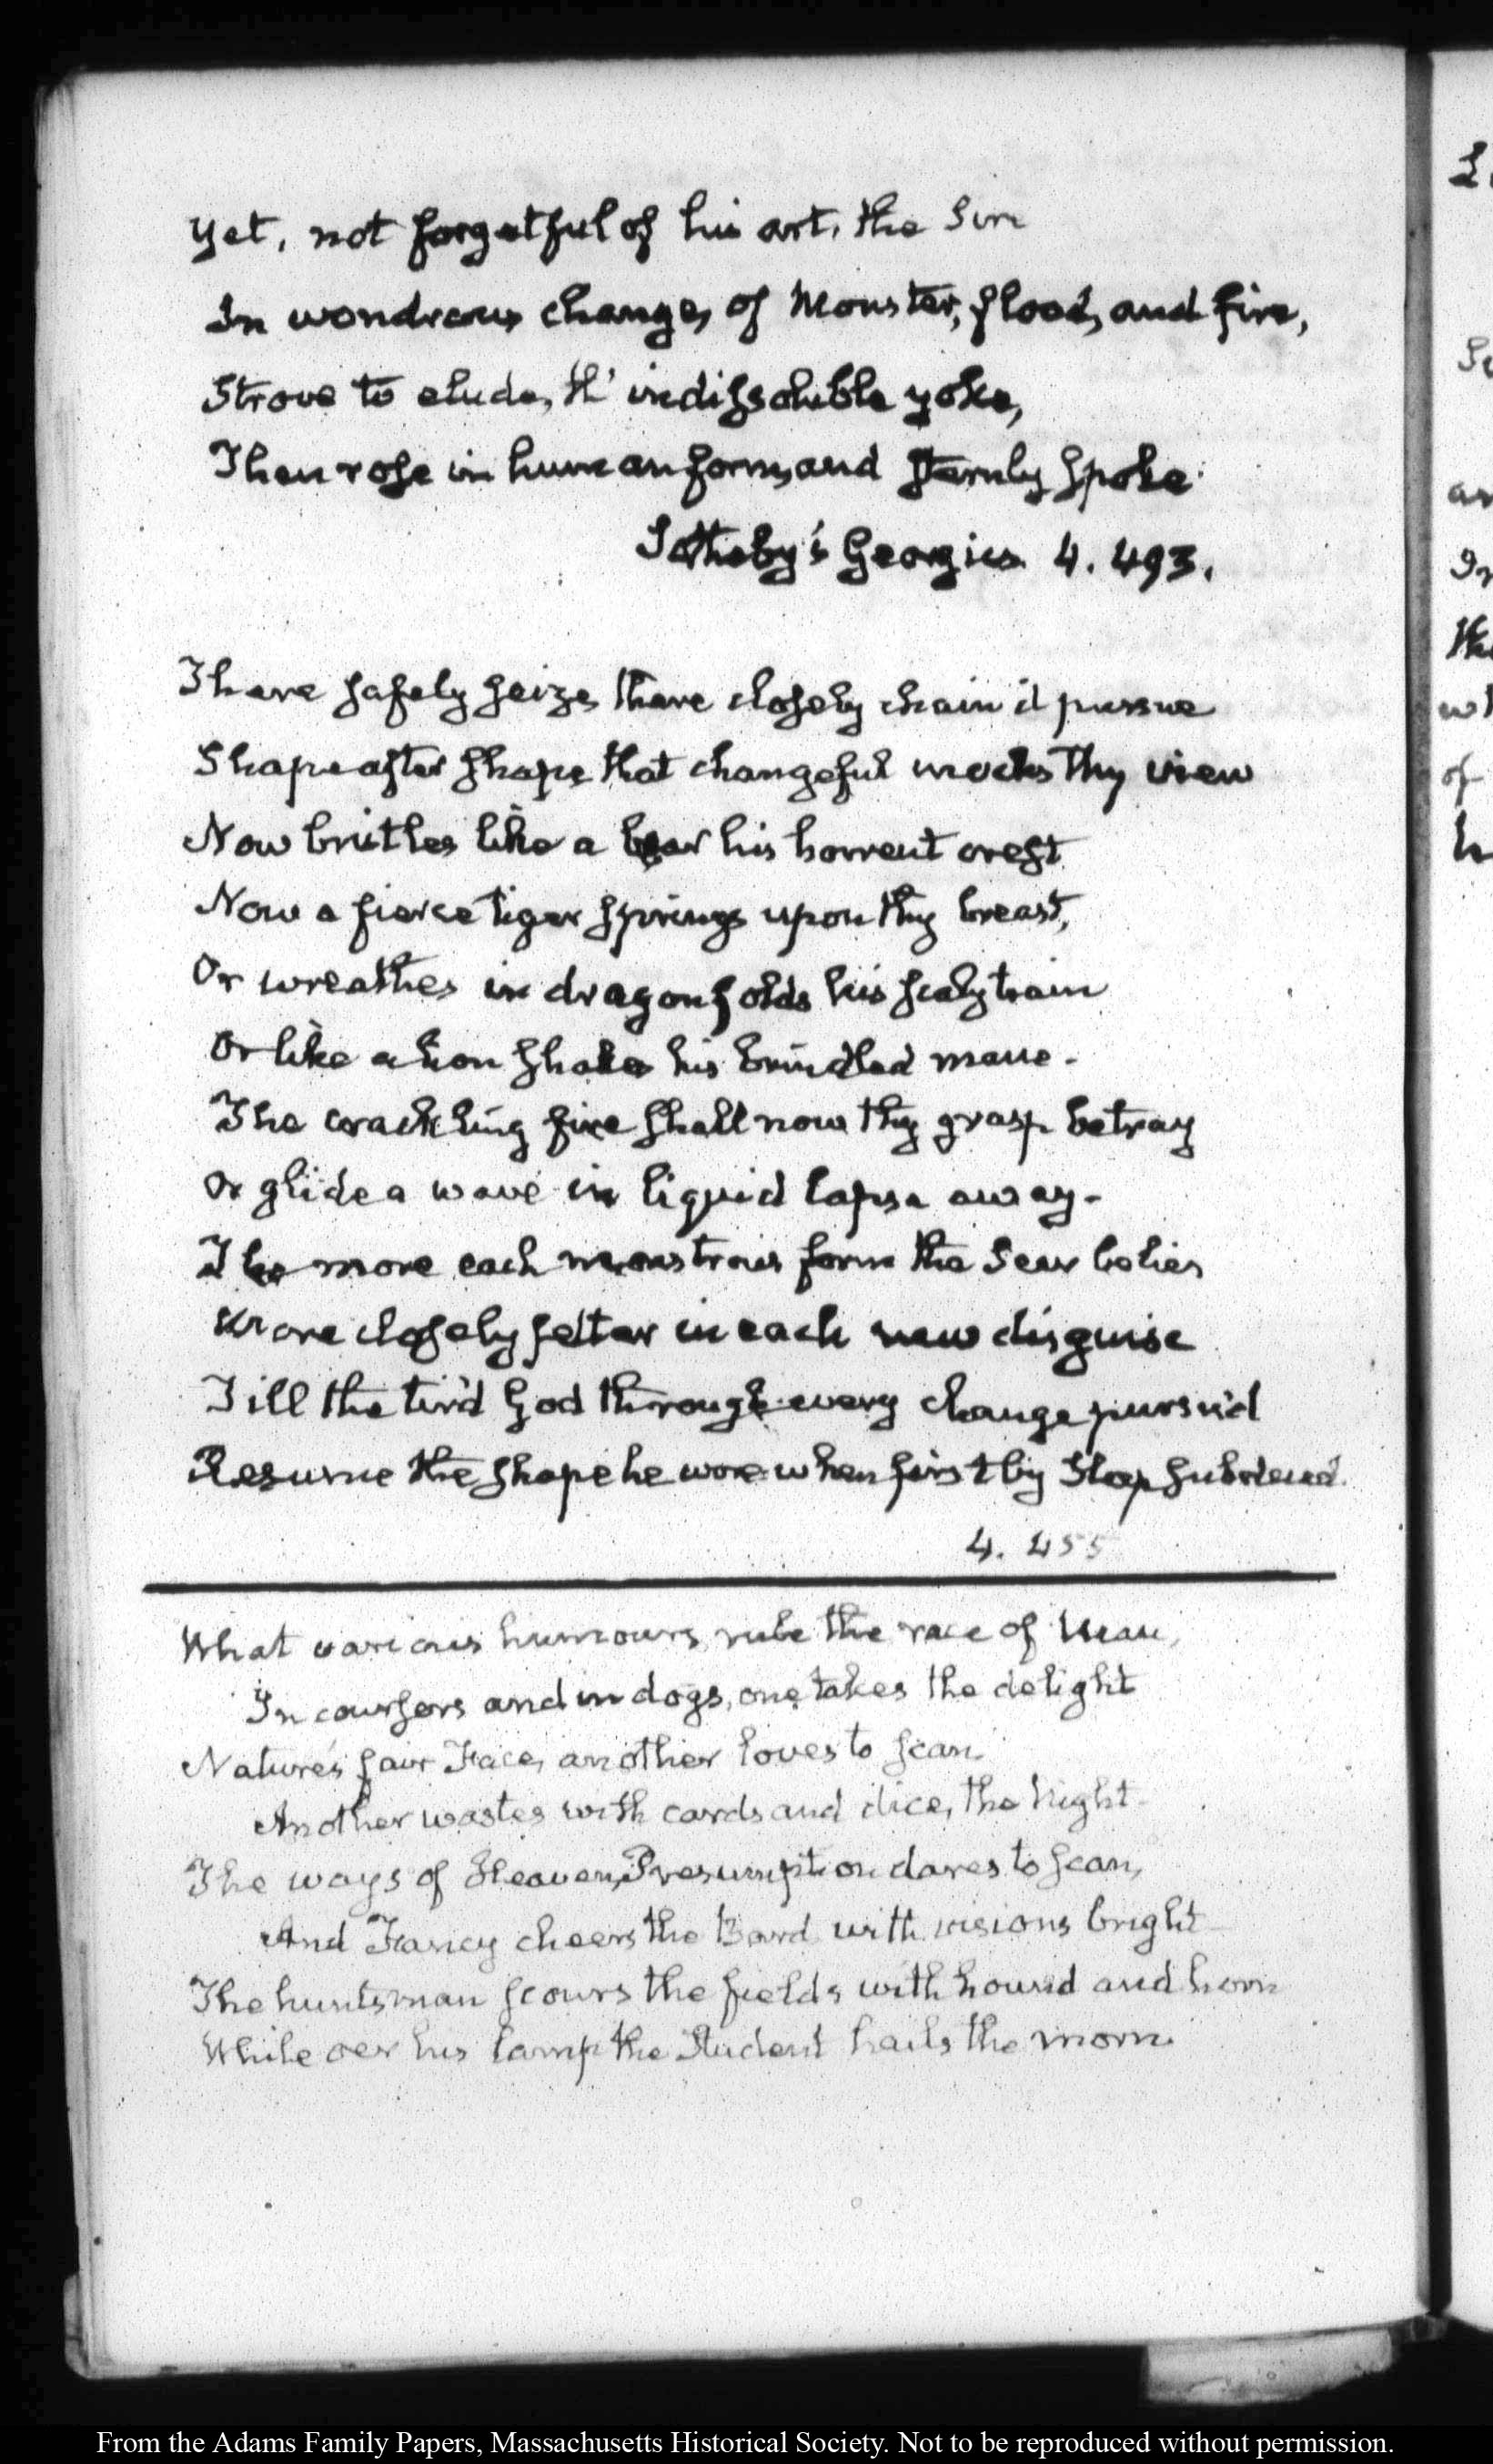 Yet, not forgetful of his art, the Sire
In wondrous change, of Monster, flood, and fire,
Strove to elude, th' indissoluble yoke,
Then rose in human form, and sternly spoke
Sotheby's Georgics 4. 493.
There safely seize, there closely chain'd pursue
Shape after shape that changeful mocks thy view
Now bristles like a boar his horrent crest
Now a fierce tiger springs upon thy breast,
Or wreathes in dragon folds his scaly train
Or like a lion shakes his brindled mane-
The crackling fire shall now thy grasp betray
Or glide a wave in liquid lapse away-
The more each monstrous form the Seer belies
More closely fetter in each new disguise
Till the tir'd God through every change pursu'd
Resume the shape he wore when first by Sleep subdued.
4. 455
What various humours rule the race of Man,
In coursers and in dogs, one takes the delight
Nature's fair Face, another loves to scan.
Another wastes with cards and dice, the Night-
The ways of Heaven, Presumption dares to scan,
And Fancy cheers the Bard with visions bright-
The huntsman scours the fields with hound and horn
While oer his lamp the Student hails the morn.
L
Se
an
In
the
wh
of
h
From the Adams Family Papers, Massachusetts Historical Society. Not to be reproduced without permission.